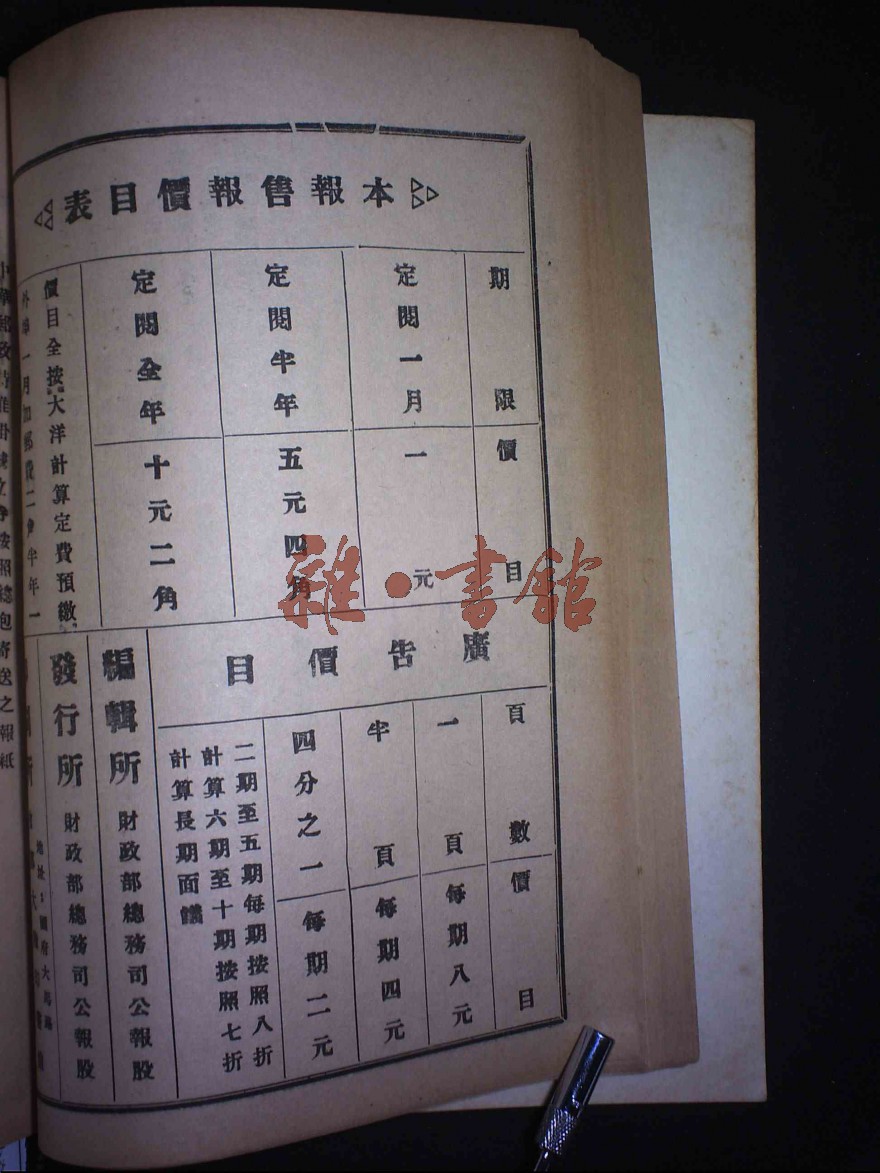 本報售報價目表
期限
價目
定閱一月
一元
定閱半年
五元四角
定閱全年
十元二角
價目全按大洋計算定費預繳
廣告價目
頁數
價目
一頁
每期八元
半頁
每期四元
四分之一
每期二元
二期至五期每期按照八折
計算六期至十期按照七折
計算長期面議
編輯所 財政部總務司公報股
發行所 財政部總務司公報股
雜·書館